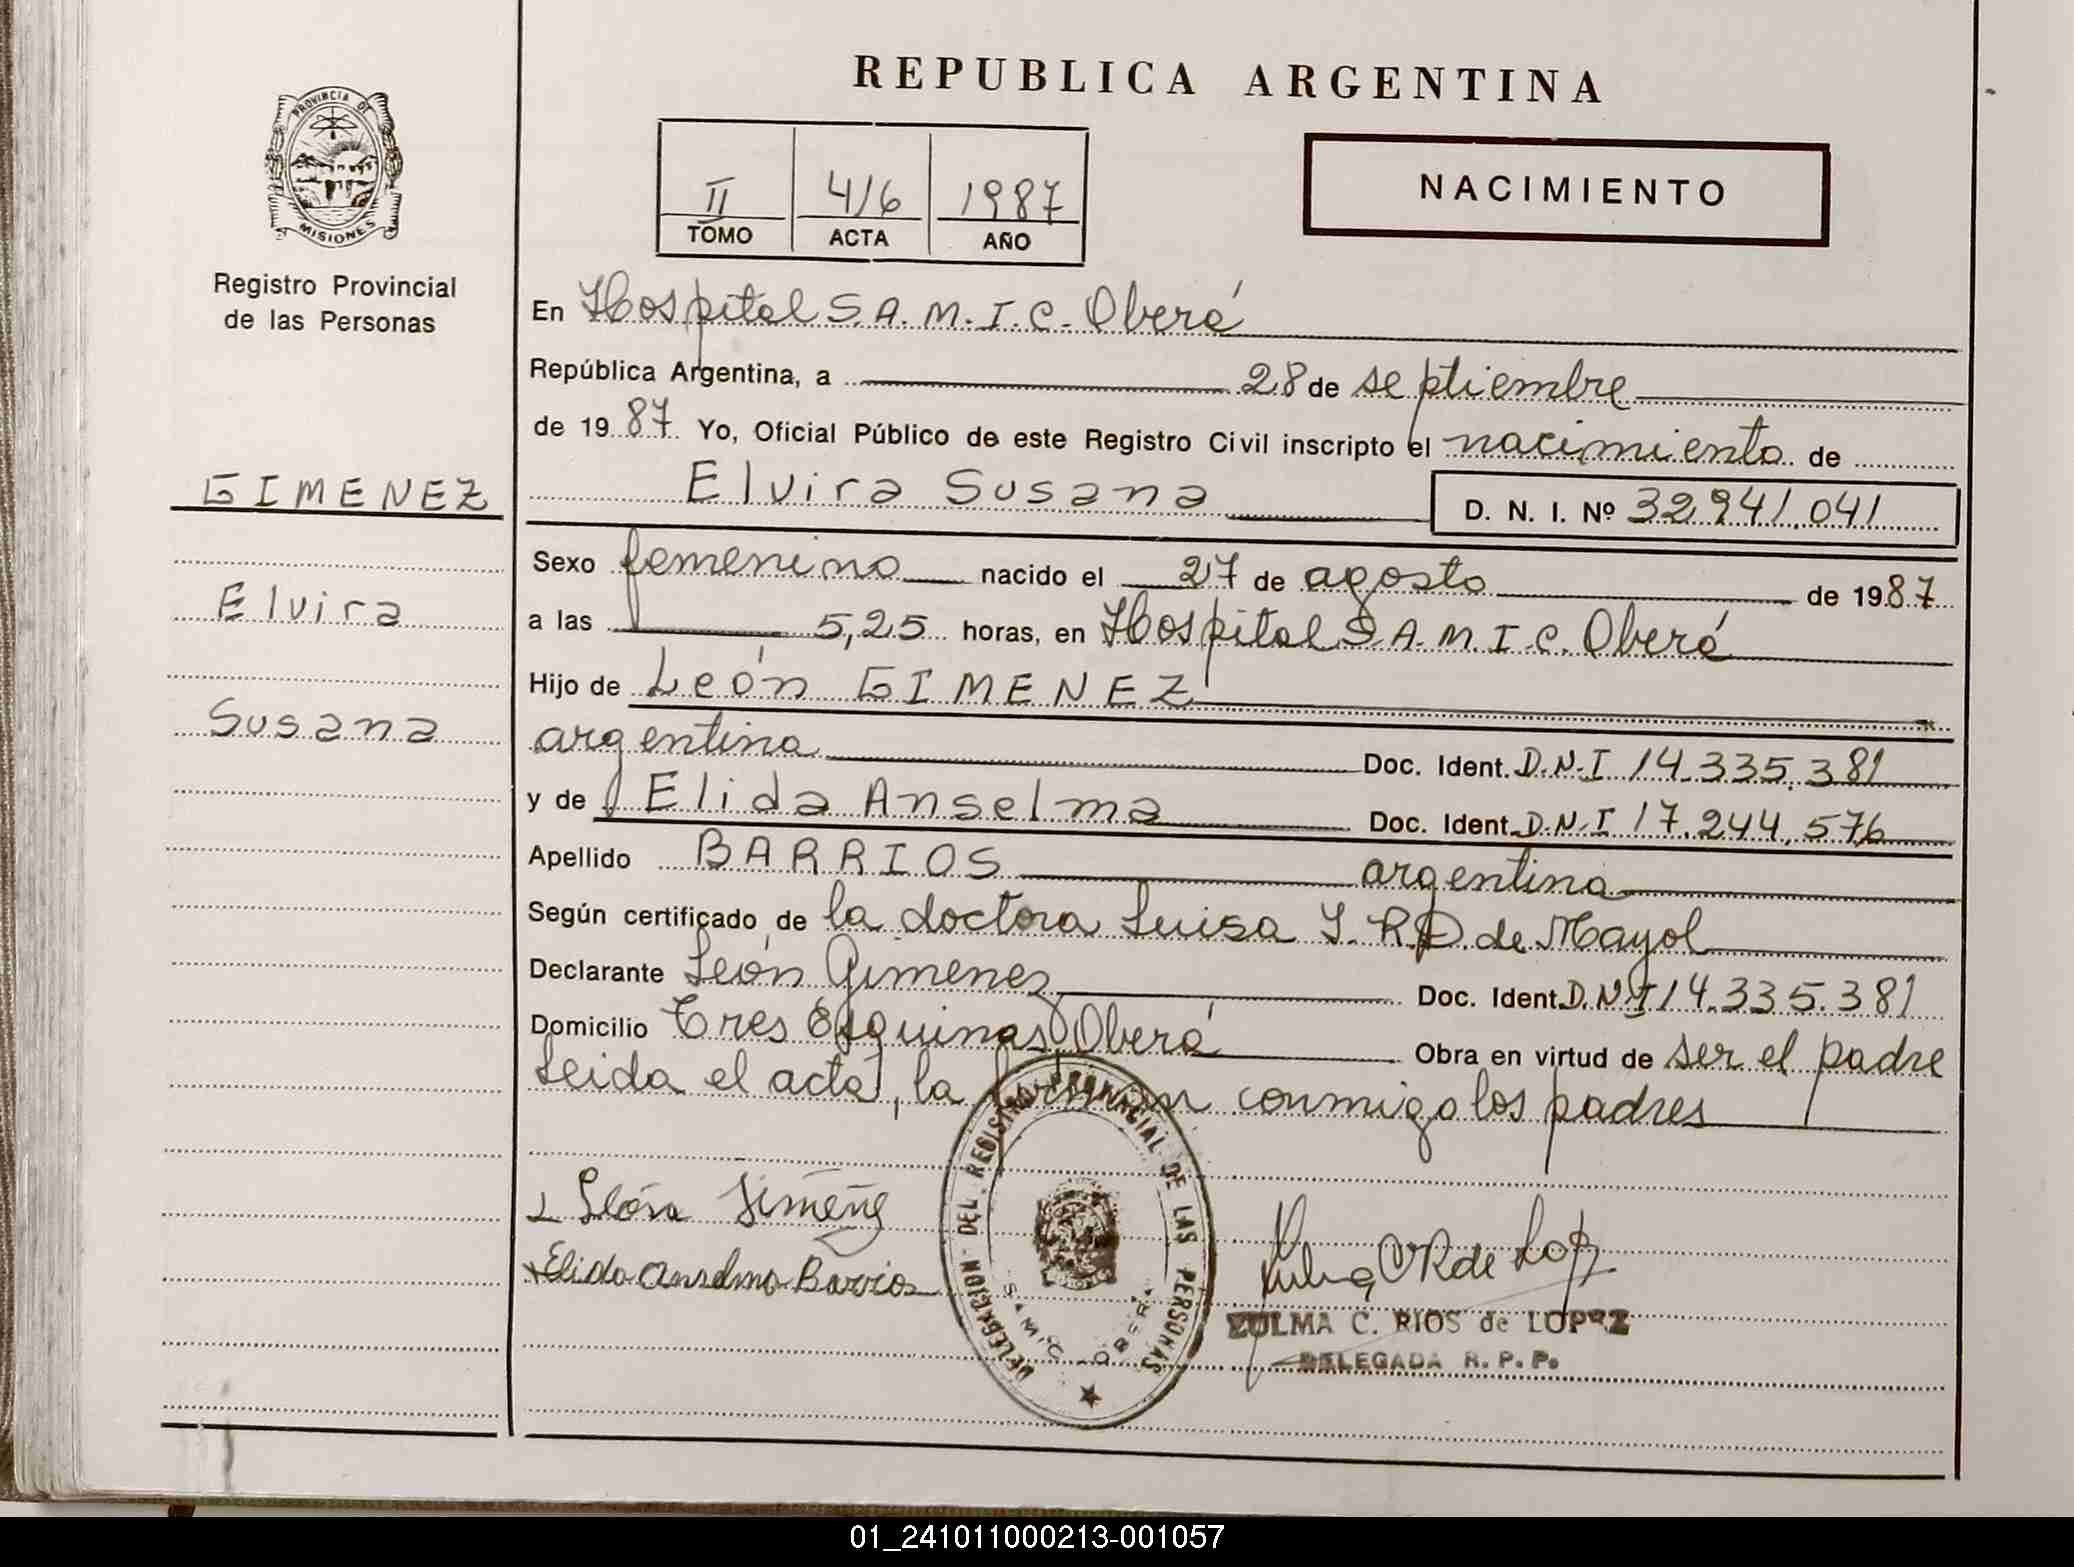 REPUBLICA ARGENTINA
PROVINCIA DE
MISIONES
Registro Provincial
de las Personas
II 416 1987
TOMO ACTA AÑO
NACIMIENTO
En Hospital S.A.M.I.C. Oberá
República Argentina, a 28 de septiembre
de 1987. Yo, Oficial Público de este Registro Civil inscripto el nacimiento de
GIMENEZ
Elvira Susana D. N. I. Nº 32.941.041
Sexo femenino nacido el 27 de agosto de 1987
Elvira
a las 5,25 horas, en Hospital S.A.M.I.C. Oberá
Hijo de León GIMENEZ
Susana
argentina Doc. Ident. D.N.I 14.335.381
y de Elida Anselma Doc. Ident. D.N.I 17.244.576
Apellido BARRIOS argentina
Según certificado de la doctora Luisa Y. R.D. de Mayol
Declarante León Gimenez Doc. Ident. D.N.I 14.335.381
Domicilio Tres Esquinas Oberá Obra en virtud de ser el padre
Leida el acta, la firman conmigo los padres
León Jimenez
Elida Anselma Barrios
DELEGACION DEL REGISTRO PROVINCIAL DE LAS PERSONAS
S.A.M.I.C. OBERA
ZULMA C. RIOS de LOPEZ
DELEGADA R. P. P.
01_241011000213-001057